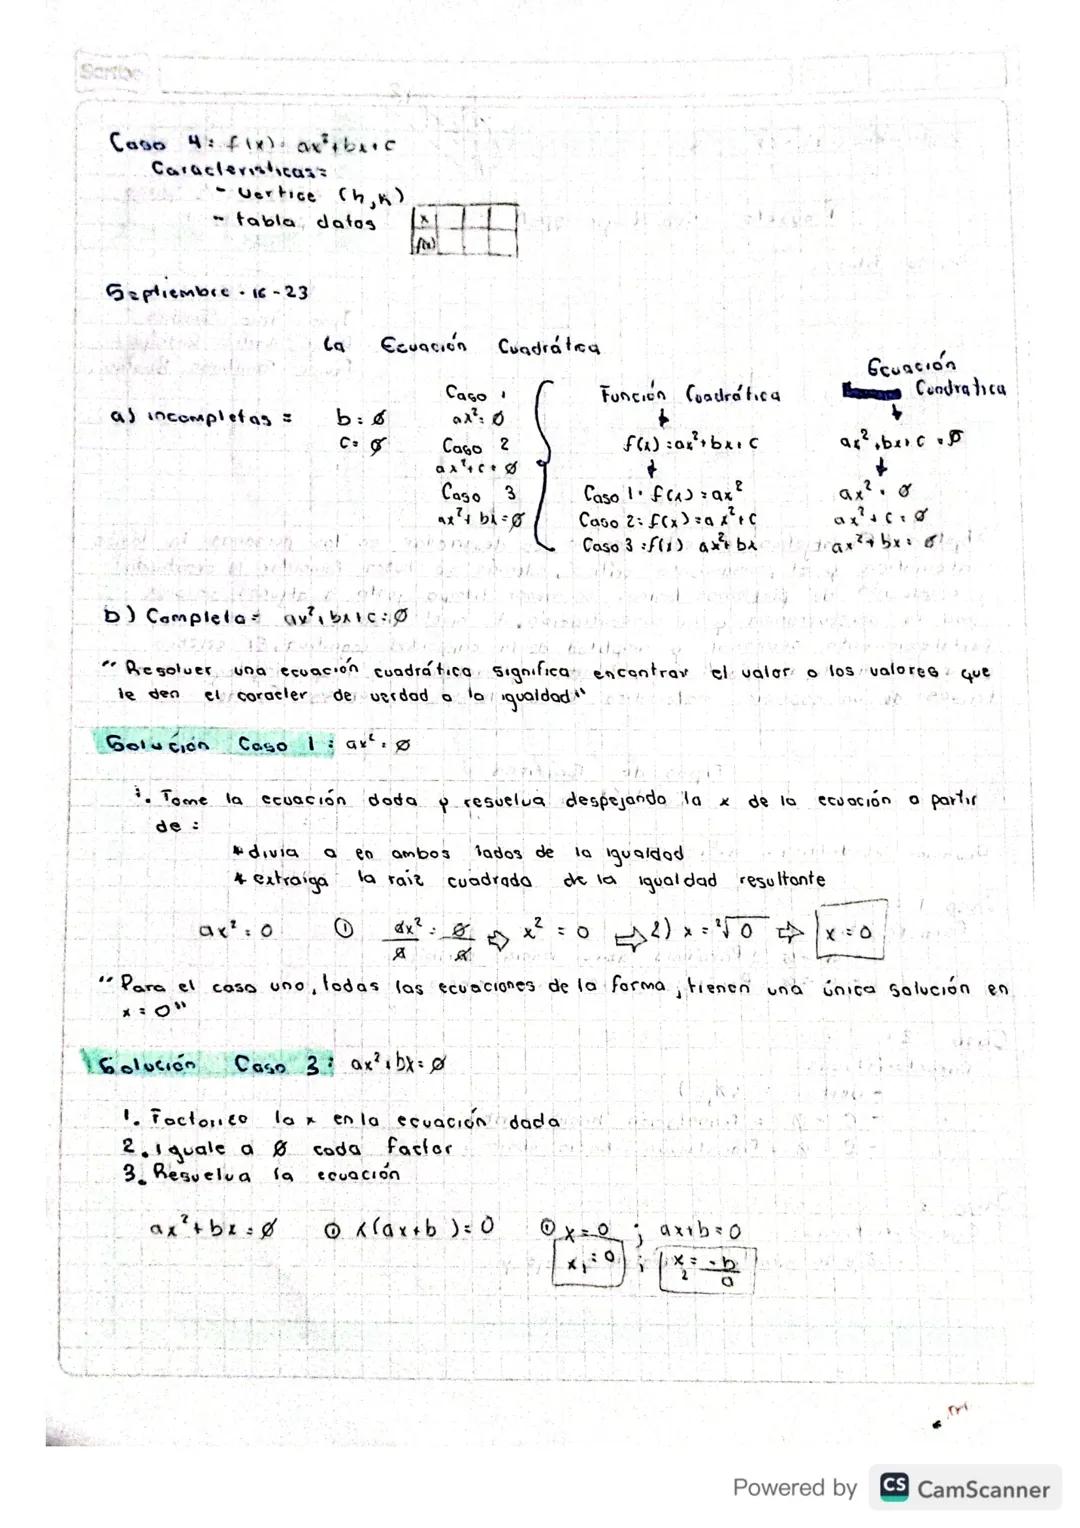 Scribe
Caso 4: f(x)= ax²+bx+c
Caracteristicas=
- Vertice (h,k)
- tabla datos
x
f(x)
Septiembre - 16 - 23
La Ecuación Cuadrática
a) incompletas =
b=∅
c=∅
Caso 1
ax²=∅
Caso 2
ax²+c=∅
Caso 3
ax²+bx=∅
Función Cuadrática
↓
f(x)=ax²+bx+c
↓
Caso 1: f(x)=ax²
Caso 2: f(x)=ax²+c
Caso 3: f(x) ax²+bx
Ecuación
Cuadratica
↓
ax²+bx+c=∅
↓
ax²=∅
ax²+c=∅
ax²+bx=∅
b) Completa= ax²+bx+c=∅
"Resolver una ecuación cuadrática significa encontrar el valor o los valores que
le den el caracter de verdad a la igualdad"
Solución Caso 1: ax²=∅
1. Tome la ecuación dada y resuelva despejando la x de la ecuación a partir
de:
* divia a en ambos lados de la igualdad
* extraiga la raiz cuadrada de la igualdad resultante
ax²=0 ① ax²/a = ∅/a ⇨ x²=0 ⇨ 2) x=²√0 ⇨ x=0
"Para el caso uno, todas las ecuaciones de la forma, tienen una única solución en
x=0"
Solución Caso 3: ax²+bx=∅
1. Factorice la x en la ecuación dada
2. Iguale a ∅ cada factor
3. Resuelva la ecuación
ax²+bx=∅ ① x(ax+b)=0 ① x=0 ; ax+b=0
x₁=0 ; x₂=-b/a
Powered by CS CamScanner